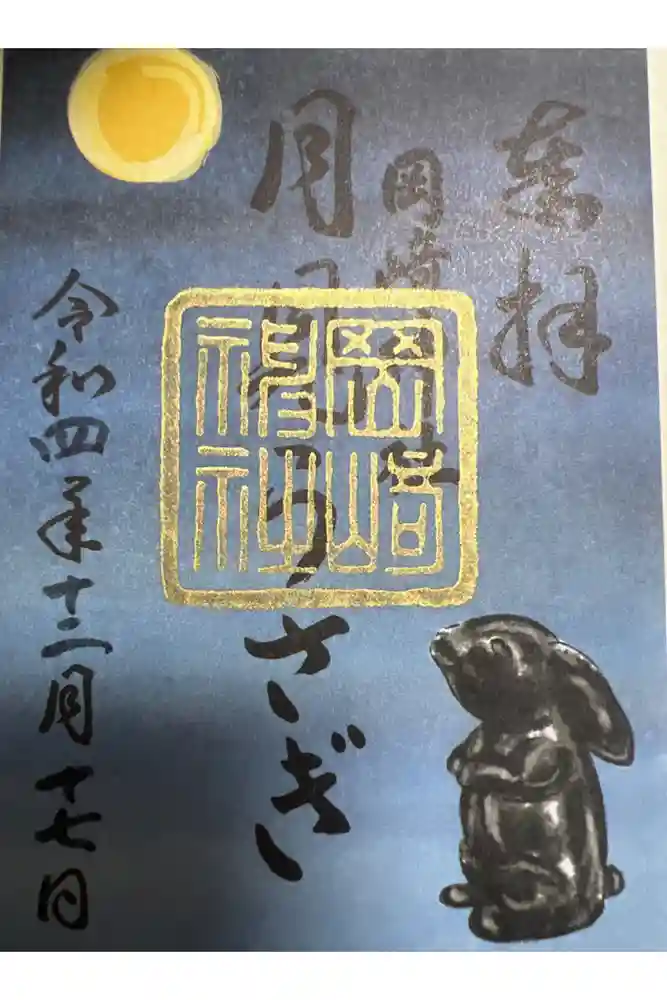 奉拝
岡崎神社
月うさぎ
令和四年十二月十七日
岡崎
神社